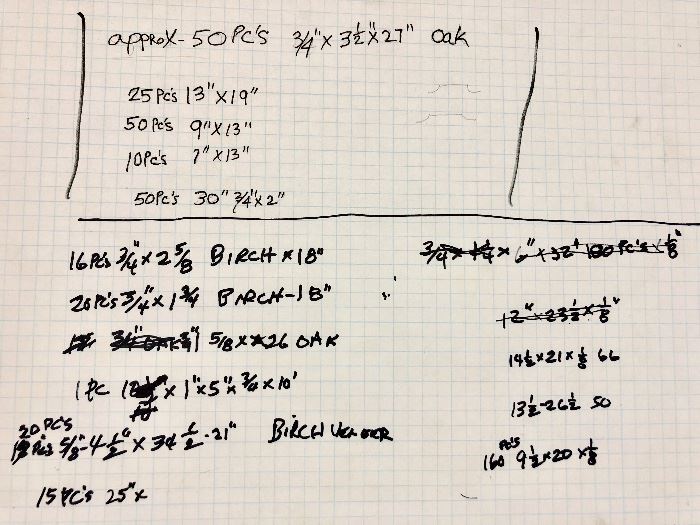 approx - 50 PC'S 3/4" x 3 1/2" x 27" Oak
25 Pc's 13" x 19"
50 Pc's 9" x 13"
10 Pc's 7" x 13"
50 Pc's 30" 3/4" x 2"
16 Pc's 3/4" x 2 5/8 BIRCH x 18"
20 Pc's 3/4" x 1 3/4 BIRCH - 18"
5/8 x 26 OAK
1 PC x 1" x 5" x 3/4 x 10'
20 PC'S
5/8" - 4 1/2" x 34 1/2 - 21" BIRCH VENEER
15 PC's 25" x
3/4 x 1 1/4 x 6" x 32" 100 PC's x 1/8"
12" x 23 1/2 x 1/8"
14 1/2 x 21 x 1/8 66
13 1/2 - 26 1/2 50
160 PC'S 9 1/2 x 20 x 1/8